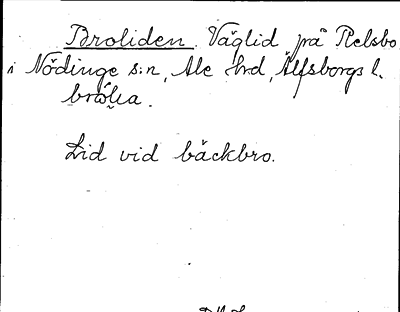 Broliden. Väglid på Relsbo
i Nödinge s:n, Ale hrd, Älfsborgs l.
Lid vid bäckbro.